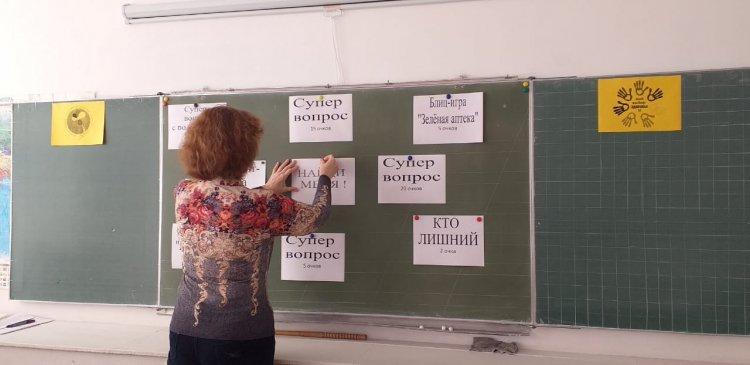 Супер
вопрос
15 очков
Блиц-игра
"Зелёная аптека"
5 очков
Супер
НАЙДИ
МЕНЯ !
Супер
вопрос
20 очков
Супер
вопрос
5 очков
КТО
ЛИШНИЙ
2 очка